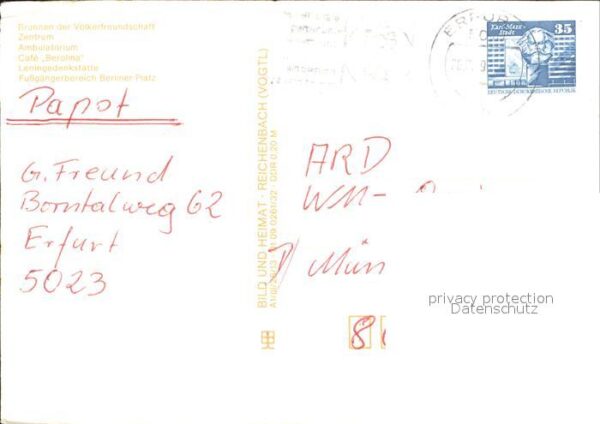 Brunnen der Völkerfreundschaft
Zentrum
Ambulatorium
Café „Berolina“
Leningedenkstätte
Fußgängerbereich Berliner Platz
Papst
G. Freund
Borntalweg 62
Erfurt
5023
BILD UND HEIMAT · REICHENBACH (VOGTL)
DDR 0,20 M
ERFURT
Karl-Marx-
Stadt
35
DEUTSCHE DEMOKRATISCHE REPUBLIK
ARD
WM-
Mün
8
privacy protection
Datenschutz